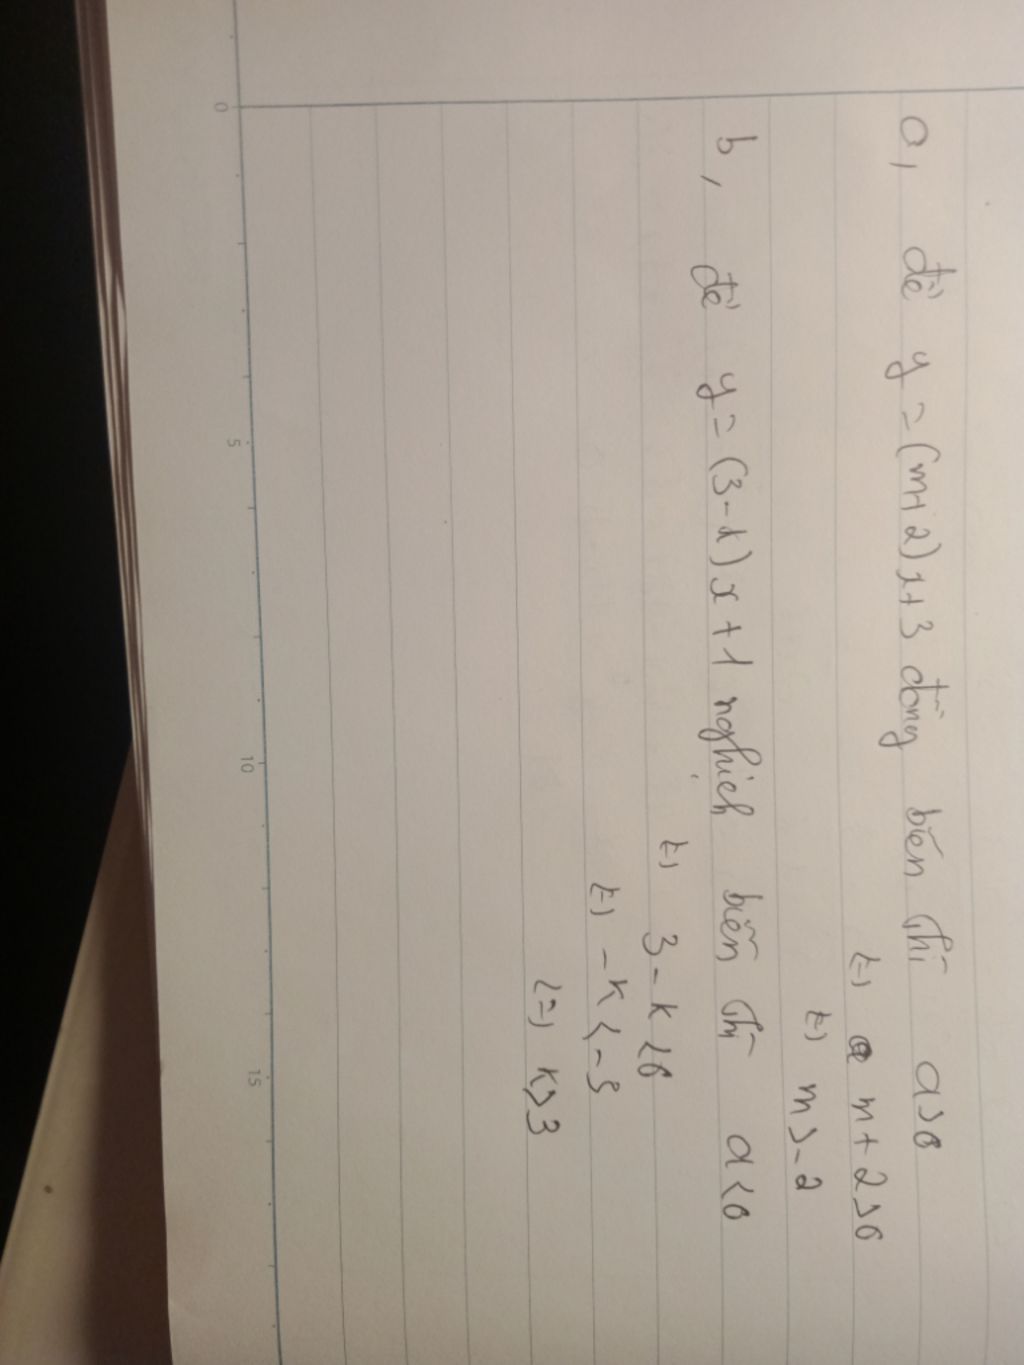 a, để y = (m+2)x+3 đồng biến thì a>0
<=> m+2>0
<=> m>-2
b, để y = (3-k)x+1 nghịch biến thì a<0
<=> 3-k<0
<=> -k<-3
<=> k>3
0 5 10 15